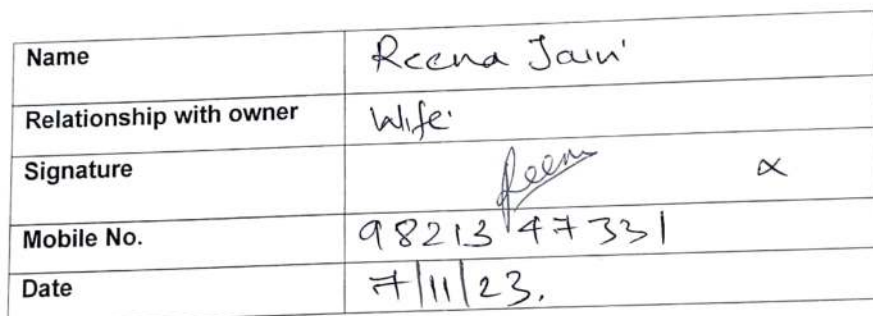 Name Reena Jain
Relationship with owner Wife
Signature Reena
Mobile No. 98213 47331
Date 7/11/23.